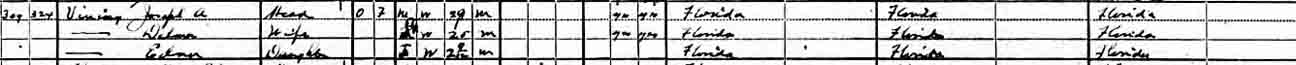 309 324 Vining Joseph A Head O 7 M W 29 M yes yes Florida Florida Florida
— Delmer Wife F W 25 M yes yes Florida Florida Florida
— Daughter F W M Florida Florida Florida